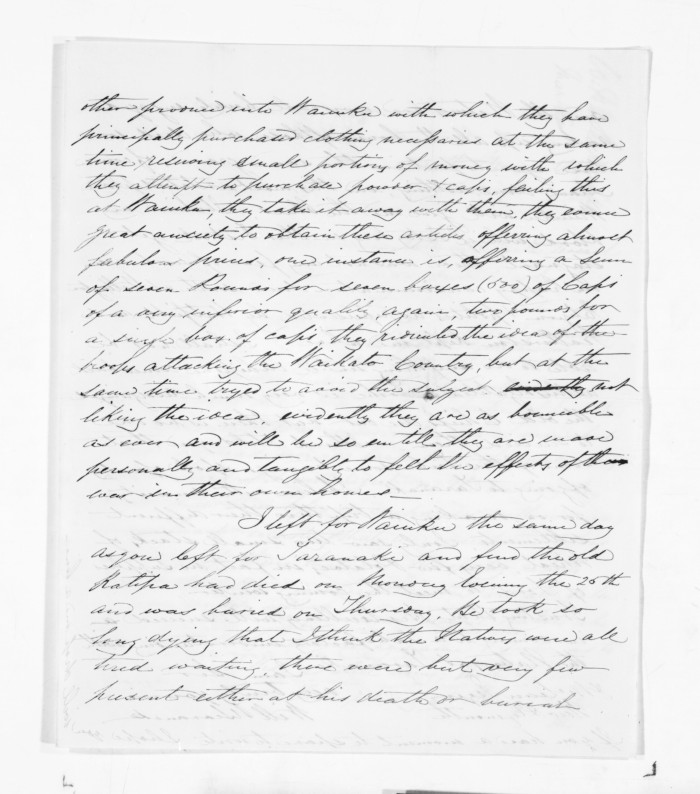 other produce into Waiuku with which they have
principally purchased clothing necessaries at the same
time, reserving small portions of money with which
they attempt to purchase powder & caps, failing this
at Waiuku, they take it away with them, they evince
great anxiety to obtain these articles offerring almost
fabulous prices, one instance is, offerring a Sum
of seven Pounds for seven boxes (500) of Caps
of a very inferior quality again, two pounds for
a single box of caps, they ridiculed the idea of the
troops attacking the Waikato Country, but at the
same time tryed to avoid the subject evidently not
liking the idea, evidently they are as bounceible
as ever and will be so untill they are made
personally and tangibly to felt the effects of the
war in their own homes —
I left for Waiuku the same day
as you left for Taranaki and find the old
Katipa had died on Monday Evening the 25th
and was buried on Thursday. He took so
long dying that I think the Natives were all
tired waiting, there were but very few
present either at his death or burial